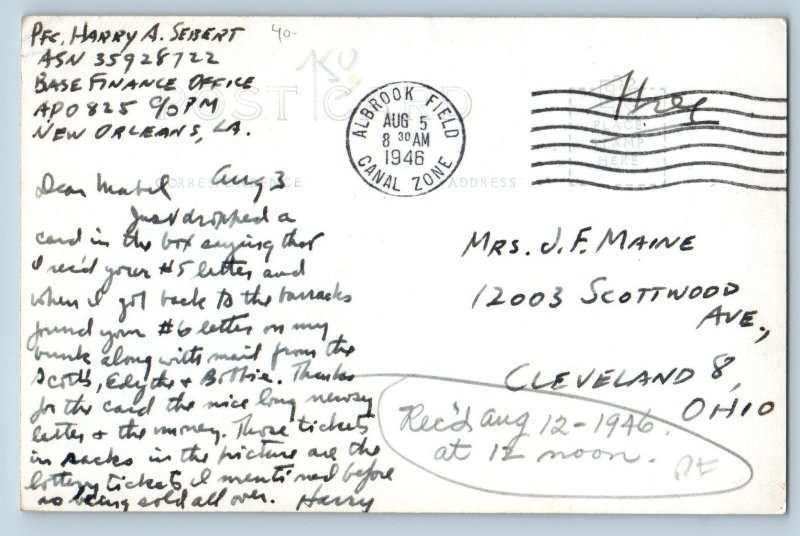 PFC. HARRY A. SEBERT
ASN 35928722
BASE FINANCE OFFICE
APO 825 C/O PM
NEW ORLEANS, LA.
40-
POST CARD
ALBROOK FIELD
AUG 5
8 30 AM
1946
CANAL ZONE
Free
PLACE
STAMP
HERE
CORRESPONDENCE
ADDRESS
Dear Mabel Aug 3
Just dropped a
card in the box saying that
I rec'd your #5 letter and
when I got back to the barracks
found your #6 letter on my
bunk along with mail from the
Scotts, Edythe & Bobbie. Thanks
for the card the nice long newsy
letter & the money. Those tickets
in racks in the picture are the
lottery tickets I mentioned before
as being sold all over. Harry
MRS. J. F. MAINE
12003 SCOTTWOOD
AVE.,
CLEVELAND 8,
OHIO
Rec'd Aug 12-1946.
at 12 noon.